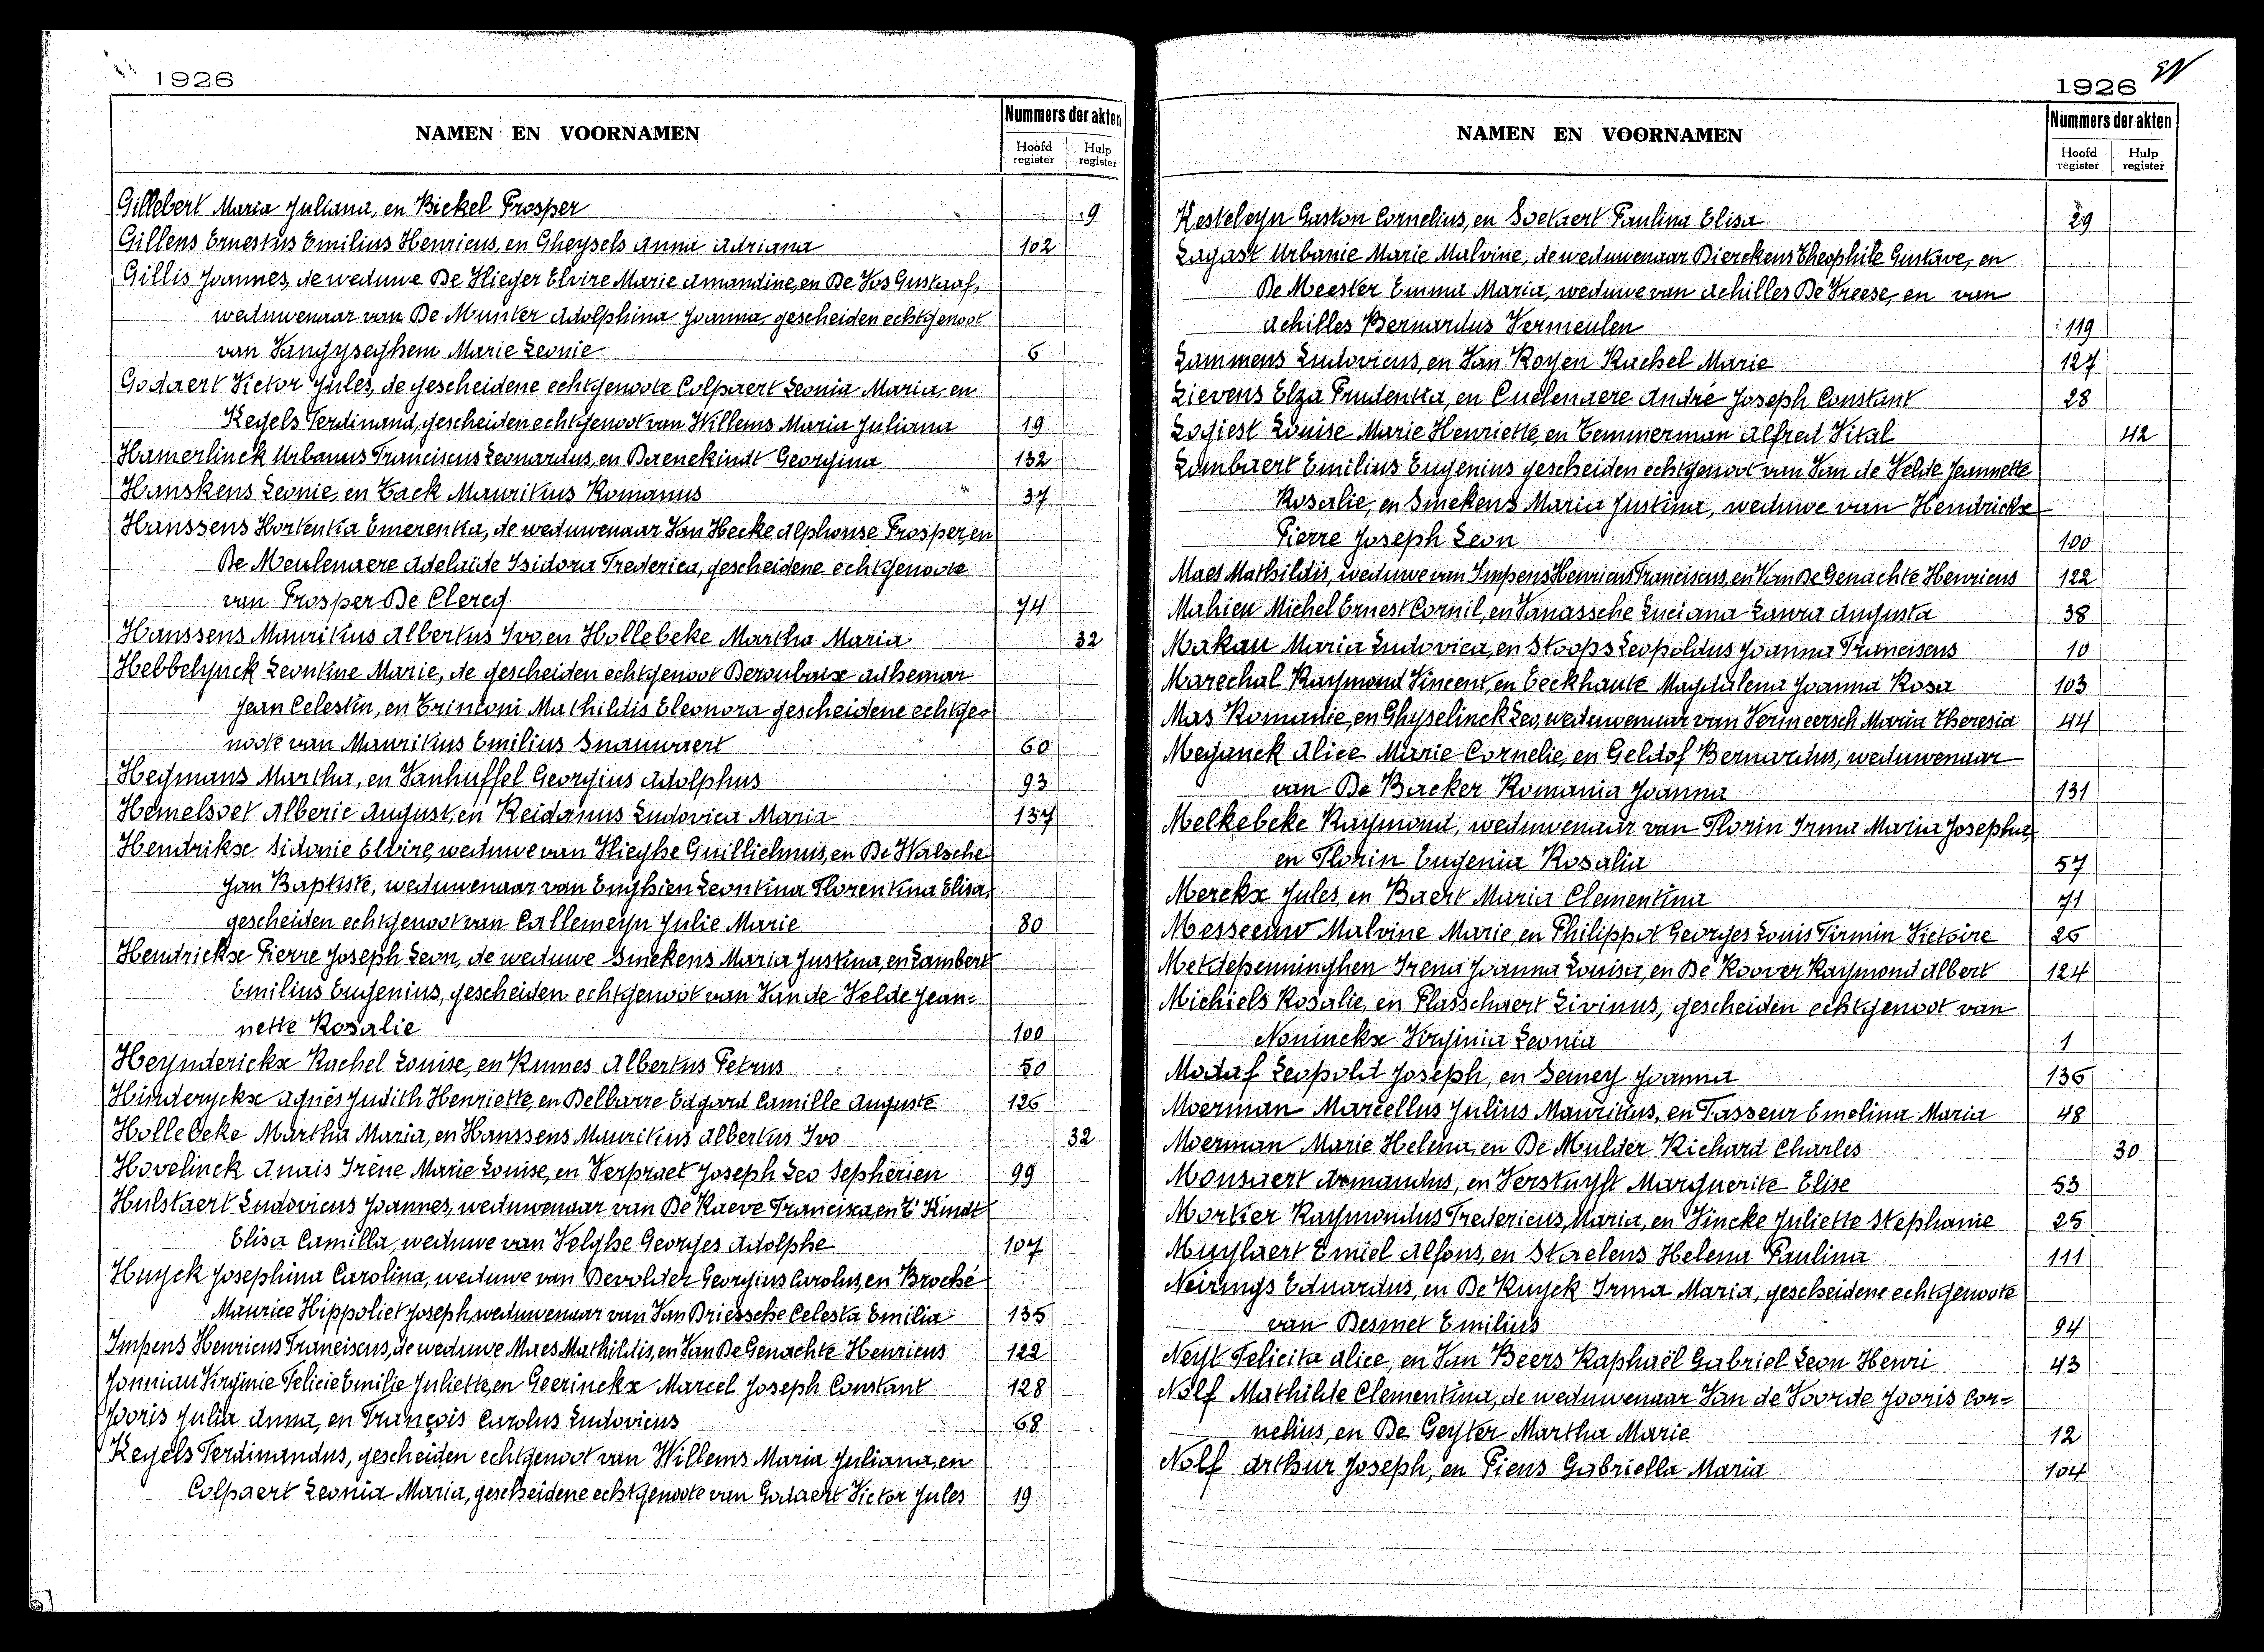 1926
NAMEN EN VOORNAMEN
Nummers der akten
Hoofd register
Hulp register
Gillebert Maria Juliana, en Bickel Prosper 9
Gillens Ernestus Emilius Henricus, en Gheysels Anna Adriana 102
Gillis Joannes, de weduwe De Vlieger Elvire Marie Amandine, en De Vos Gustaaf,
weduwenaar van De Munter Adolphina Joanna, gescheiden echtgenoot
van Vangyseghem Marie Leonie 6
Godaert Victor Jules, de gescheidene echtgenoote Colpaert Leonia Maria, en
Kegels Ferdinand, gescheiden echtgenoot van Willems Maria Juliana 19
Hamerlinck Urbanus Franciscus Leonardus, en Baenekindt Georgina 132
Hanskens Leonie, en Tack Mauritius Romanus 37
Hanssens Hortentia Emerentia, de weduwenaar Van Hecke Alphonse Prosper, en
De Meulenaere Adelaïde Isidora Frederica, gescheidene echtgenoote
van Prosper De Clercq 74
Hanssens Mauritius Albertus Ivo, en Hollebeke Martha Maria 32
Hebbelynck Leontine Marie, de gescheiden echtgenoot Deroubaix Adhemar
Jean Celestin, en Trintoni Mathildis Eleonora gescheidene echtge=
noote van Mauritius Emilius Snauwaert 60
Heymans Martha, en Vanhuffel Georgius Adolphus 93
Hemelsoet Alberic August, en Reidanus Ludovica Maria 137
Hendrikse Sidonie Elvire, weduwe van Vlieghe Guilliehmus, en De Walsche
Jan Baptiste, weduwenaar van Enghien Leontina Florentina Elisa,
gescheiden echtgenoot van Callemeyn Julie Marie 80
Hendrickx Pierre Joseph Leon, de weduwe Smekens Maria Justina, en Lambert
Emilius Eugenius, gescheiden echtgenoot van Van de Velde Jean=
nette Rosalie 100
Heynderickx Rachel Louise, en Runnes Albertus Petrus 50
Hinderyckx Agnès Judith Henriette, en Delbarre Edgard Camille Auguste 126
Hollebeke Martha Maria, en Hanssens Mauritius Albertus Ivo 32
Hovelinck Anaïs Irène Marie Louise, en Verpraet Joseph Leo Sephérien 99
Hulstaert Ludovicus Joannes, weduwenaar van De Raeve Francisca, en T'Kindt
Elisa Camilla, weduwe van Velghe Georges Adolphe 107
Huyck Josephina Carolina, weduwe van Devolder Georgius Carolus, en Broché
Maurice Hippoliet Joseph, weduwenaar van Van Driessche Celesta Emilia 135
Impens Henricus Franciscus, de weduwe Maes Mathildis, en Van De Genachte Henricus 122
Jonniau Virginie Felicie Emilie Juliette, en Geerinckx Marcel Joseph Constant 128
Jooris Julia Anna, en François Carolus Ludovicus 68
Kegels Ferdinandus, gescheiden echtgenoot van Willems Maria Juliana, en
Colpaert Leonia Maria, gescheidene echtgenoote van Godaert Victor Jules 19
1926
NAMEN EN VOORNAMEN
Nummers der akten
Hoofd register
Hulp register
Kesteleyn Gaston Cornelius, en Soetaert Paulina Elisa 29
Lagast Urbanie Marie Malvine, de weduwenaar Dierckens Theophile Gustave, en
De Meester Emma Maria, weduwe van Achilles De Vreese, en van
Achilles Bernardus Vermeulen 119
Lammens Ludovicus, en Van Royen Rachel Marie 127
Lievens Elza Prudentia, en Cuelenaere André Joseph Constant 28
Logiest Louise Marie Henriette, en Temmerman Alfred Vital 42
Lambaert Emilius Eugenius gescheiden echtgenoot van Van de Velde Jeannette
Rosalie, en Smekens Maria Justina, weduwe van Hendrickx
Pierre Joseph Leon 100
Maes Mathildis, weduwe van Impens Henricus Franciscus, en Van De Genachte Henricus 122
Mahieu Michel Ernest Cornil, en Vanassche Luciana Laura Augusta 38
Makau Maria Ludovica, en Stoops Leopoldus Joanna Franciscus 10
Marechal Raymond Vincent, en Eeckhaute Magdalena Joanna Rosa 103
Mas Romanie, en Ghyselinck Leo, weduwenaar van Vermeersch Maria Theresia 44
Meganck Alice Marie Cornelie, en Geldof Bernardus, weduwenaar
van De Backer Romania Joanna 131
Melkebeke Raymond, weduwenaar van Florin Irma Maria Josepha,
en Florin Eugenia Rosalia 57
Merckx Jules, en Baert Maria Clementina 71
Messeeuw Malvine Marie, en Philippot Georges Louis Firmin Victoire 26
Metdepenninghen Irena Joanna Louisa, en De Roover Raymond Albert 124
Michiels Rosalie, en Plasschaert Livinus, gescheiden echtgenoot van
Noninckx Virginia Leonia 1
Modaf Leopold Joseph, en Semey Joanna 136
Moerman Marcellus Julius Mauritius, en Tasseur Emelina Maria 48
Moerman Marie Helena, en De Mulder Richard Charles 30
Monsaert Armandus, en Verstuyft Marguerite Elise 53
Mortier Raymondus Fredericus, Maria, en Vincke Juliette Stephanie 25
Muylaert Emiel Alfons, en Staelens Helena Paulina 111
Neirings Eduardus, en De Ruyck Irma Maria, gescheidene echtgenoote
van Desmet Emilius 94
Neyt Felicita Alice, en Van Beers Raphaël Gabriel Leon Henri 43
Nolf Mathilde Clementina, de weduwenaar Van de Voorde Jooris Cor=
nelius, en De Geyter Martha Marie 12
Nolf Arthur Joseph, en Piens Gabriella Maria 104